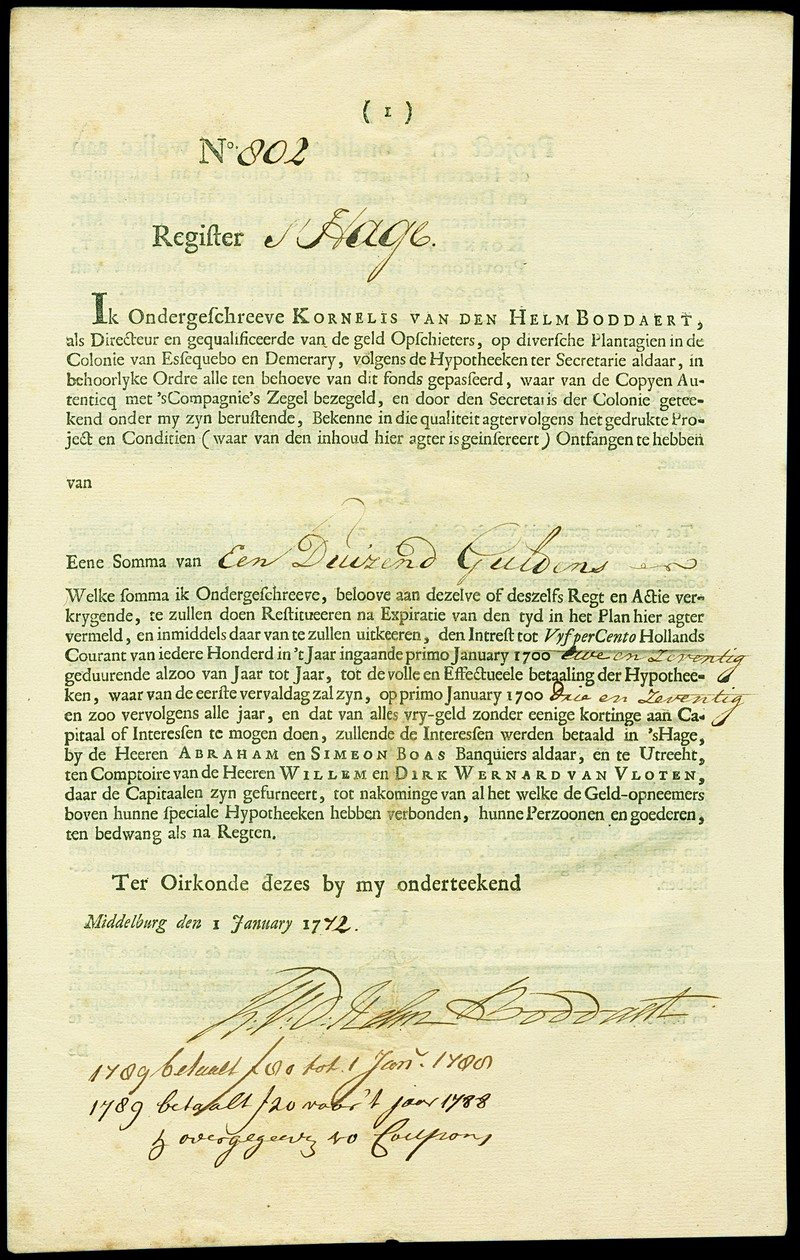 ( 1 )
No. 802
Regiſter s'Hage.
Ik Ondergeſchreeve KORNELIS VAN DEN HELM BODDAERT,
als Directeur en gequalificeerde van de geld Opſchieters, op diverſche Plantagien in de
Colonie van Eſſequebo en Demerary, volgens de Hypotheeken ter Secretarie aldaar, in
behoorlyke Ordre alle ten behoeve van dit fonds gepaſſeerd, waar van de Copyen Au-
tenticq met 'sCompagnie's Zegel bezegeld, en door den Secretaris der Colonie getee-
kend onder my zyn beruſtende, Bekenne in die qualiteit agtervolgens het gedrukte Pro-
ject en Conditien (waar van den inhoud hier agter is geinſereert) Ontfangen te hebben
van
Eene Somma van Een Duizend Guldens
Welke ſomma ik Ondergeſchreeve, beloove aan dezelve of deszelfs Regt en Actie ver-
krygende, te zullen doen Reſtitueeren na Expiratie van den tyd in het Plan hier agter
vermeld, en inmiddels daar van te zullen uitkeeren, den Intreſt tot Vyf per Cento Hollands
Courant van iedere Honderd in 't Jaar ingaande primo January 1700 twe en Zeventig
geduurende alzoo van Jaar tot Jaar, tot de volle en Effectueele betaaling der Hypothee-
ken, waar van de eerſte vervaldag zal zyn, op primo January 1700 Drie en Zeventig
en zoo vervolgens alle jaar, en dat van alles vry-geld zonder eenige kortinge aan Ca-
pitaal of Intereſſen te mogen doen, zullende de Intereſſen werden betaald in 'sHage,
by de Heeren ABRAHAM en SIMEON BOAS Banquiers aldaar, en te Utrecht,
ten Comptoire van de Heeren WILLEM en DIRK WERNARD VAN VLOTEN,
daar de Capitaalen zyn gefurneert, tot nakominge van al het welke de Geld-opneemers
boven hunne ſpeciale Hypotheeken hebben verbonden, hunne Perzoonen en goederen,
ten bedwang als na Regten.
Ter Oirkonde dezes by my onderteekend
Middelburg den 1 January 1772.
K. V. D. Helm Boddaert
1789 betaalt ƒ80 tot 1 Jan. 1788
1789 betaalt ƒ20 voor 't jaar 1788
overgegeven 10 Coupons